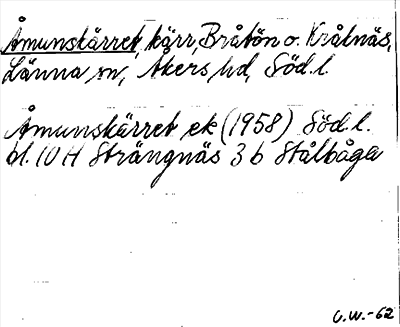 Åmunskärret, kärr, Bråtön o. Kråknäs,
Länna sn, Åkers hd, Söd.l.
Åmunskärret ek (1958) Söd.l.
bl. 10 H Strängnäs 3 b Stålbåga
O.W.-62